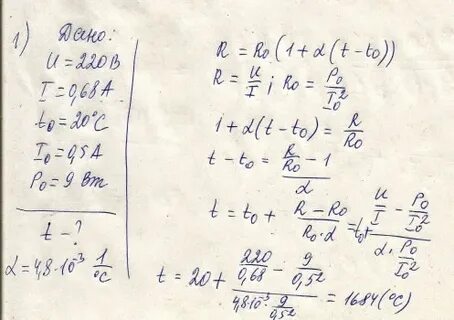 1) Дано:
U = 220 В
I = 0,68 А
t₀ = 20°С
I₀ = 0,5 А
P₀ = 9 Вт
t - ?
α = 4,8·10⁻³ 1/°С
R = R₀(1 + α(t - t₀))
R = U/I ; R₀ = P₀/I₀²
1 + α(t - t₀) = R/R₀
t - t₀ = (R/R₀ - 1)/α
t = t₀ + (R - R₀)/(R₀·α) = t₀ + (U/I - P₀/I₀²)/(α·P₀/I₀²)
t = 20 + (220/0,68 - 9/0,5²)/(4,8·10⁻³ 9/0,5²) = 1684 (°С)